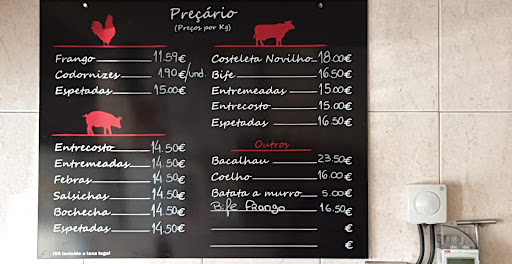 Preçário
(Preços por Kg)
Frango 11.59€
Codornizes 1.90€/und.
Espetadas 15.00€
Entrecosto 14.50€
Entremeadas 14.50€
Febras 14.50€
Salsichas 14.50€
Bochecha 14.50€
Espetadas 14.50€
Costeleta Novilho 18.00€
Bife 16.50€
Entremeadas 15.00€
Entrecosto 15.00€
Espetadas 16.50€
Outros
Bacalhau 23.50€
Coelho 16.00€
Batata a murro 5.00€
Bife Frango 16.50€
€
€
IVA incluído a taxa legal